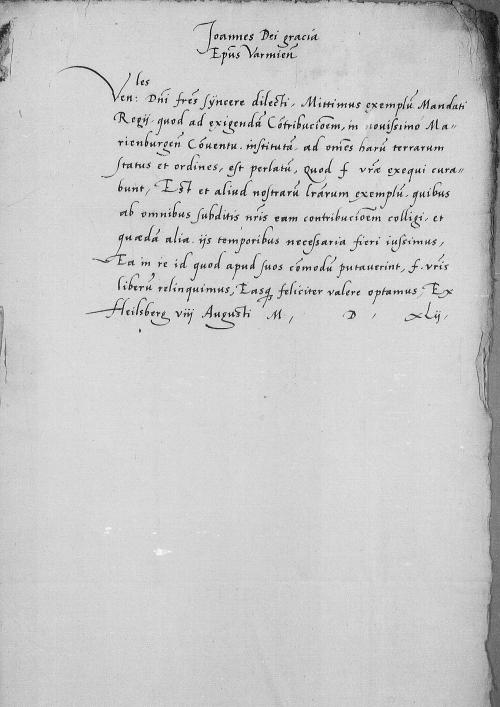 Joannes Dei gracia
Epūs Varmień
Ven:les Dn̄i fr̄es sÿncere dilecti, Mittimus exemplū Mandati
Regij. quod ad exigendā Cōtribucio͞em, in novissimo Ma=
rienburgeń Cōventu. institutā. ad om̄es harū terrarum
status et ordines, est perlatū, Quod f. vr̄ae exequi cura=
bunt, Est et aliud nostrarū lr̄arum exemplū. quibus
ab omnibus subditis nr̄is eam contribucio͞em colligi. et
quædā alia. ijs temporibus necessaria fieri iussimus,
Ea in re id quod apud suos cōmodū putaverint, f. vr̄is
liberū relinquimus, Easq̨ feliciter valere optamus, Ex
Heilsberg viij Augusti M, D, xLij,